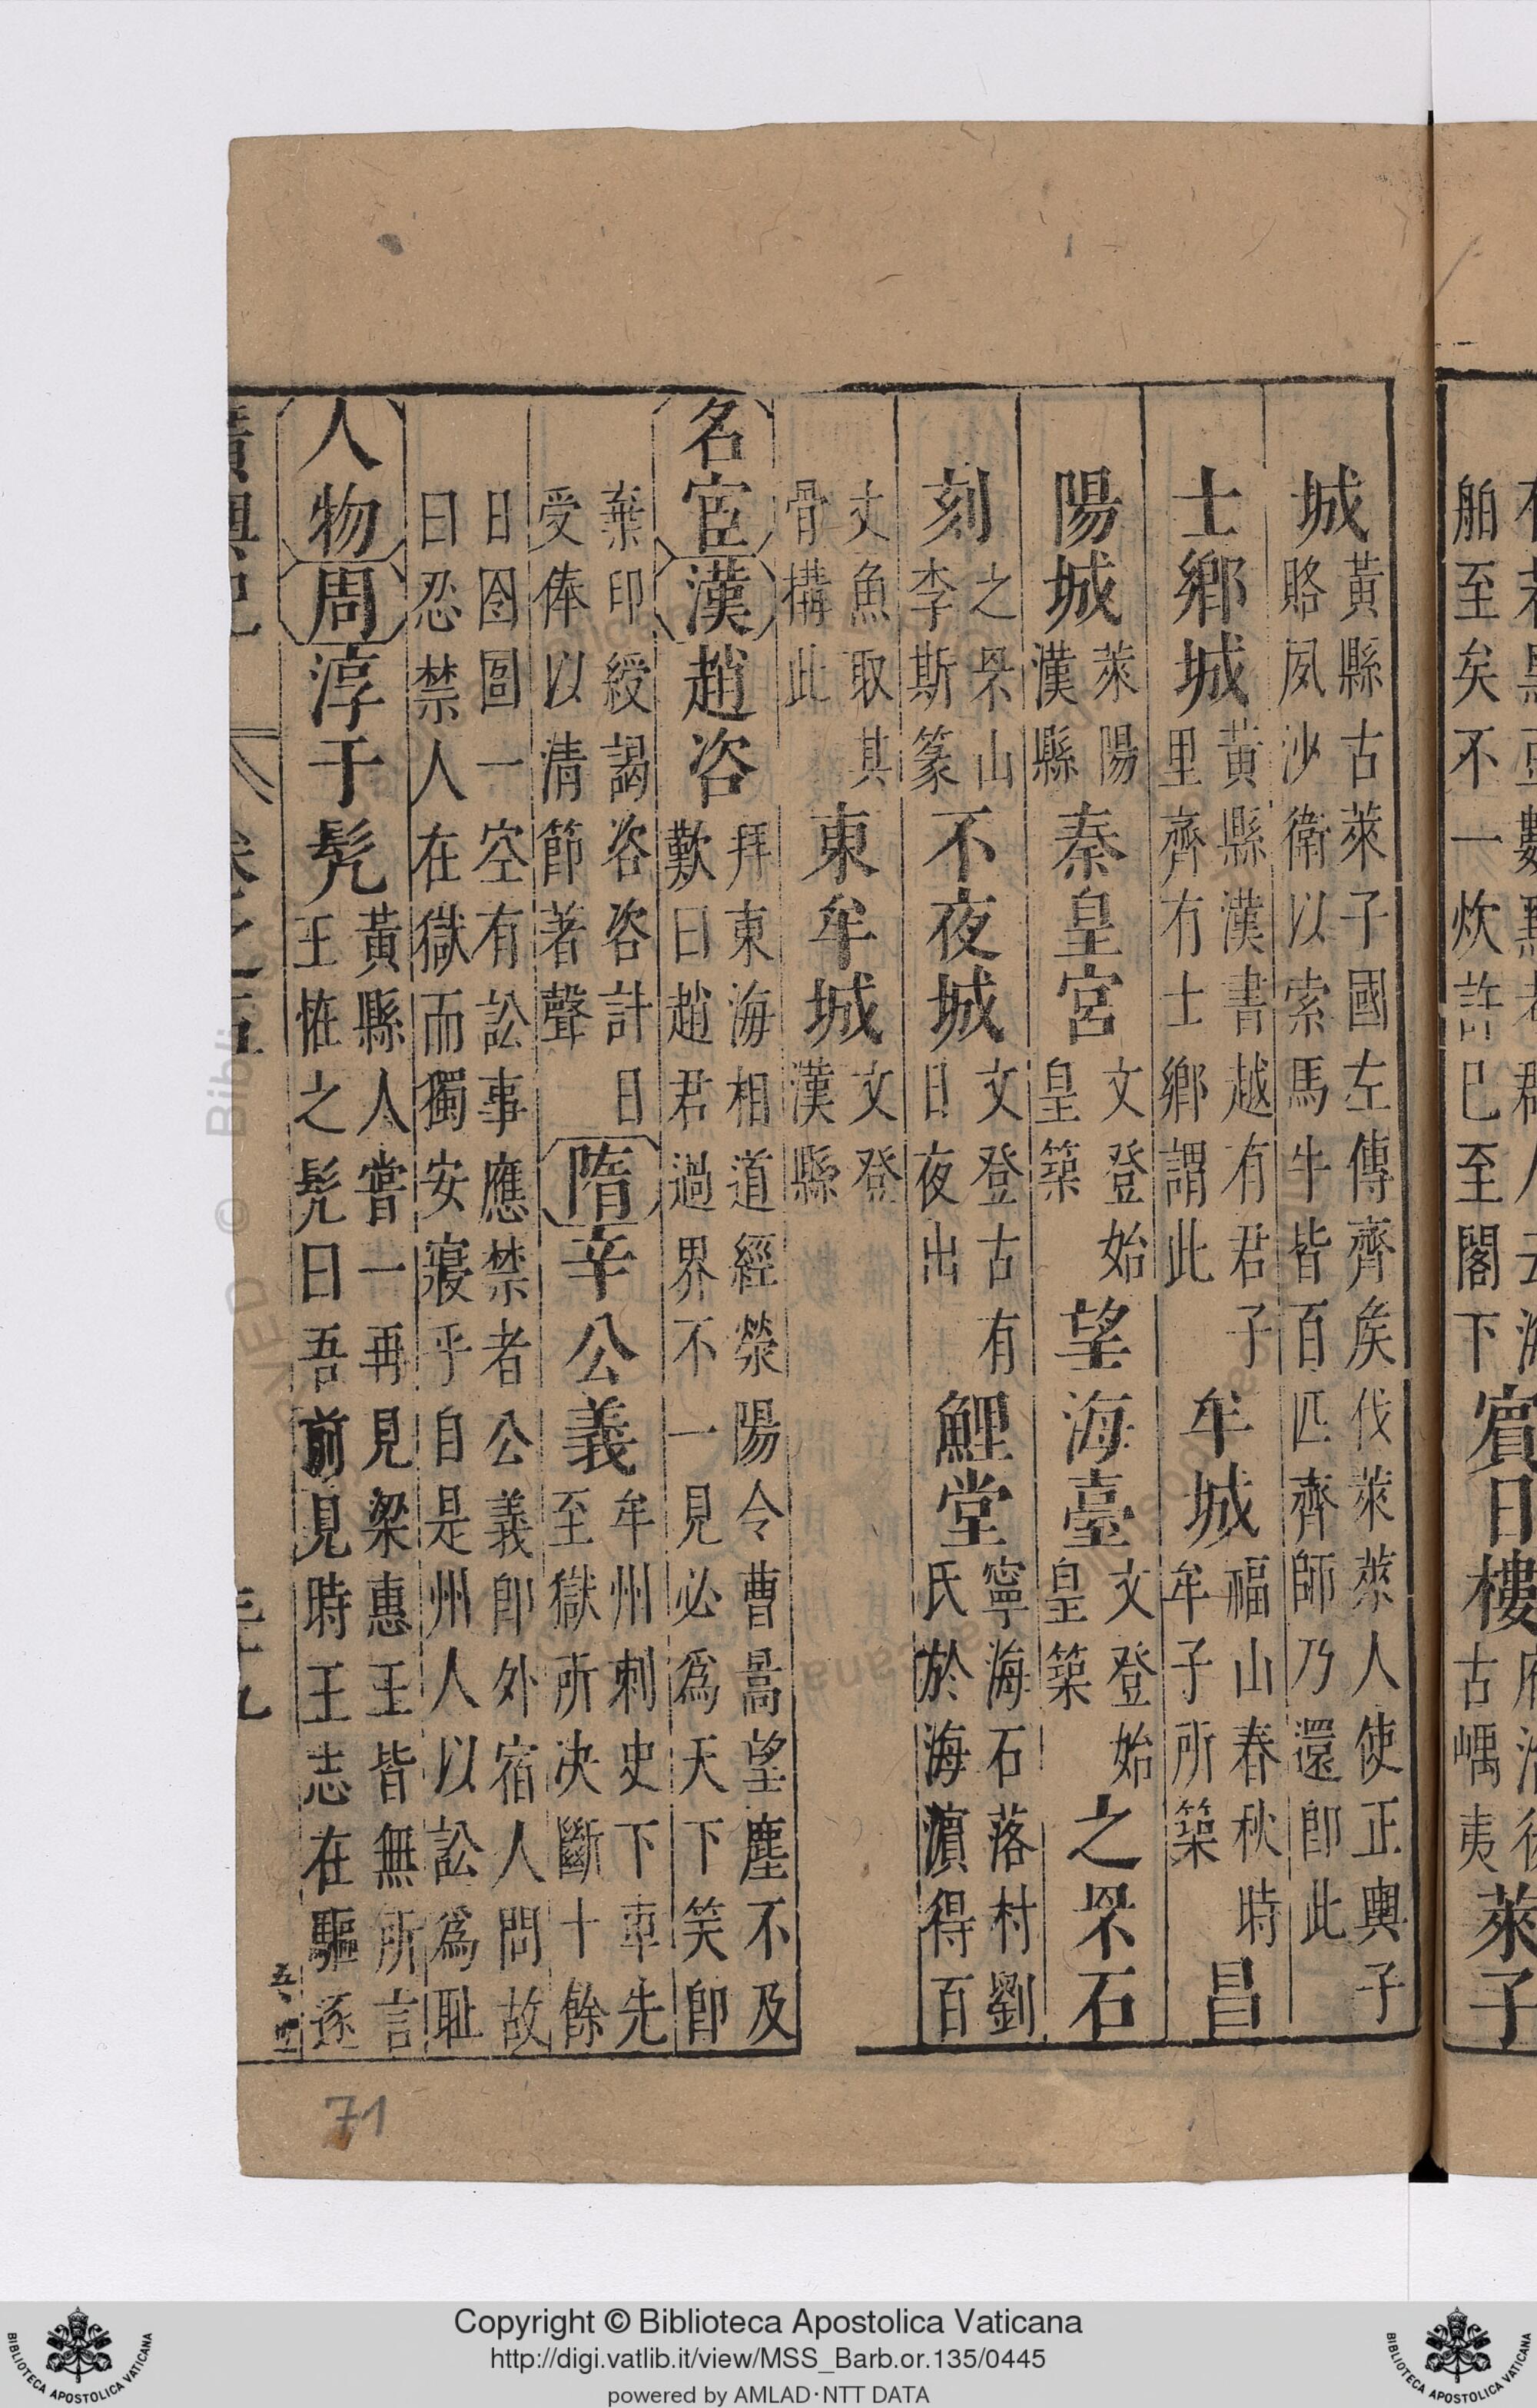 舶至矣不一炊許巳至閣下賔日樓古嵎夷萊子
城黃縣古萊子國左傳齊矦伐萊萊人使正輿子賂夙沙衛以索馬牛皆百匹齊師乃還即此
士鄉城黃縣漢書越有君子里齊有士鄉謂此牟城福山春秋時牟子所築昌
陽城萊陽漢縣秦皇宮文登始皇築望海臺文登始皇築之罘石
刻之罘山李斯篆不夜城文登古有日夜出鯉堂寧海石落村劉氏於海濵得百
丈魚取其骨構此東牟城文登漢縣
名宦漢趙咨拜東海相道經滎陽令曹暠望塵不及歎曰趙君過界不一見必爲天下笑即
棄印綬謁咨咨計日受俸以清節著聲隋辛公義牟州刺史下車先至獄所决斷十餘
日囹圄一空有訟事應禁者公義即外宿人問故曰忍禁人在獄而獨安寢乎自是州人以訟爲耻
人物周淳于髡黃縣人嘗一再見梁惠王皆無所言王恠之髡曰吾前見時王志在驅逐
廣輿記 卷之五 三十九
71
© Biblioteca Apostolica Vaticana
Copyright © Biblioteca Apostolica Vaticana
http://digi.vatlib.it/view/MSS_Barb.or.135/0445
powered by AMLAD·NTT DATA
BIBLIOTECA APOSTOLICA VATICANA
BIBLIOTECA APOSTOLICA VATICANA